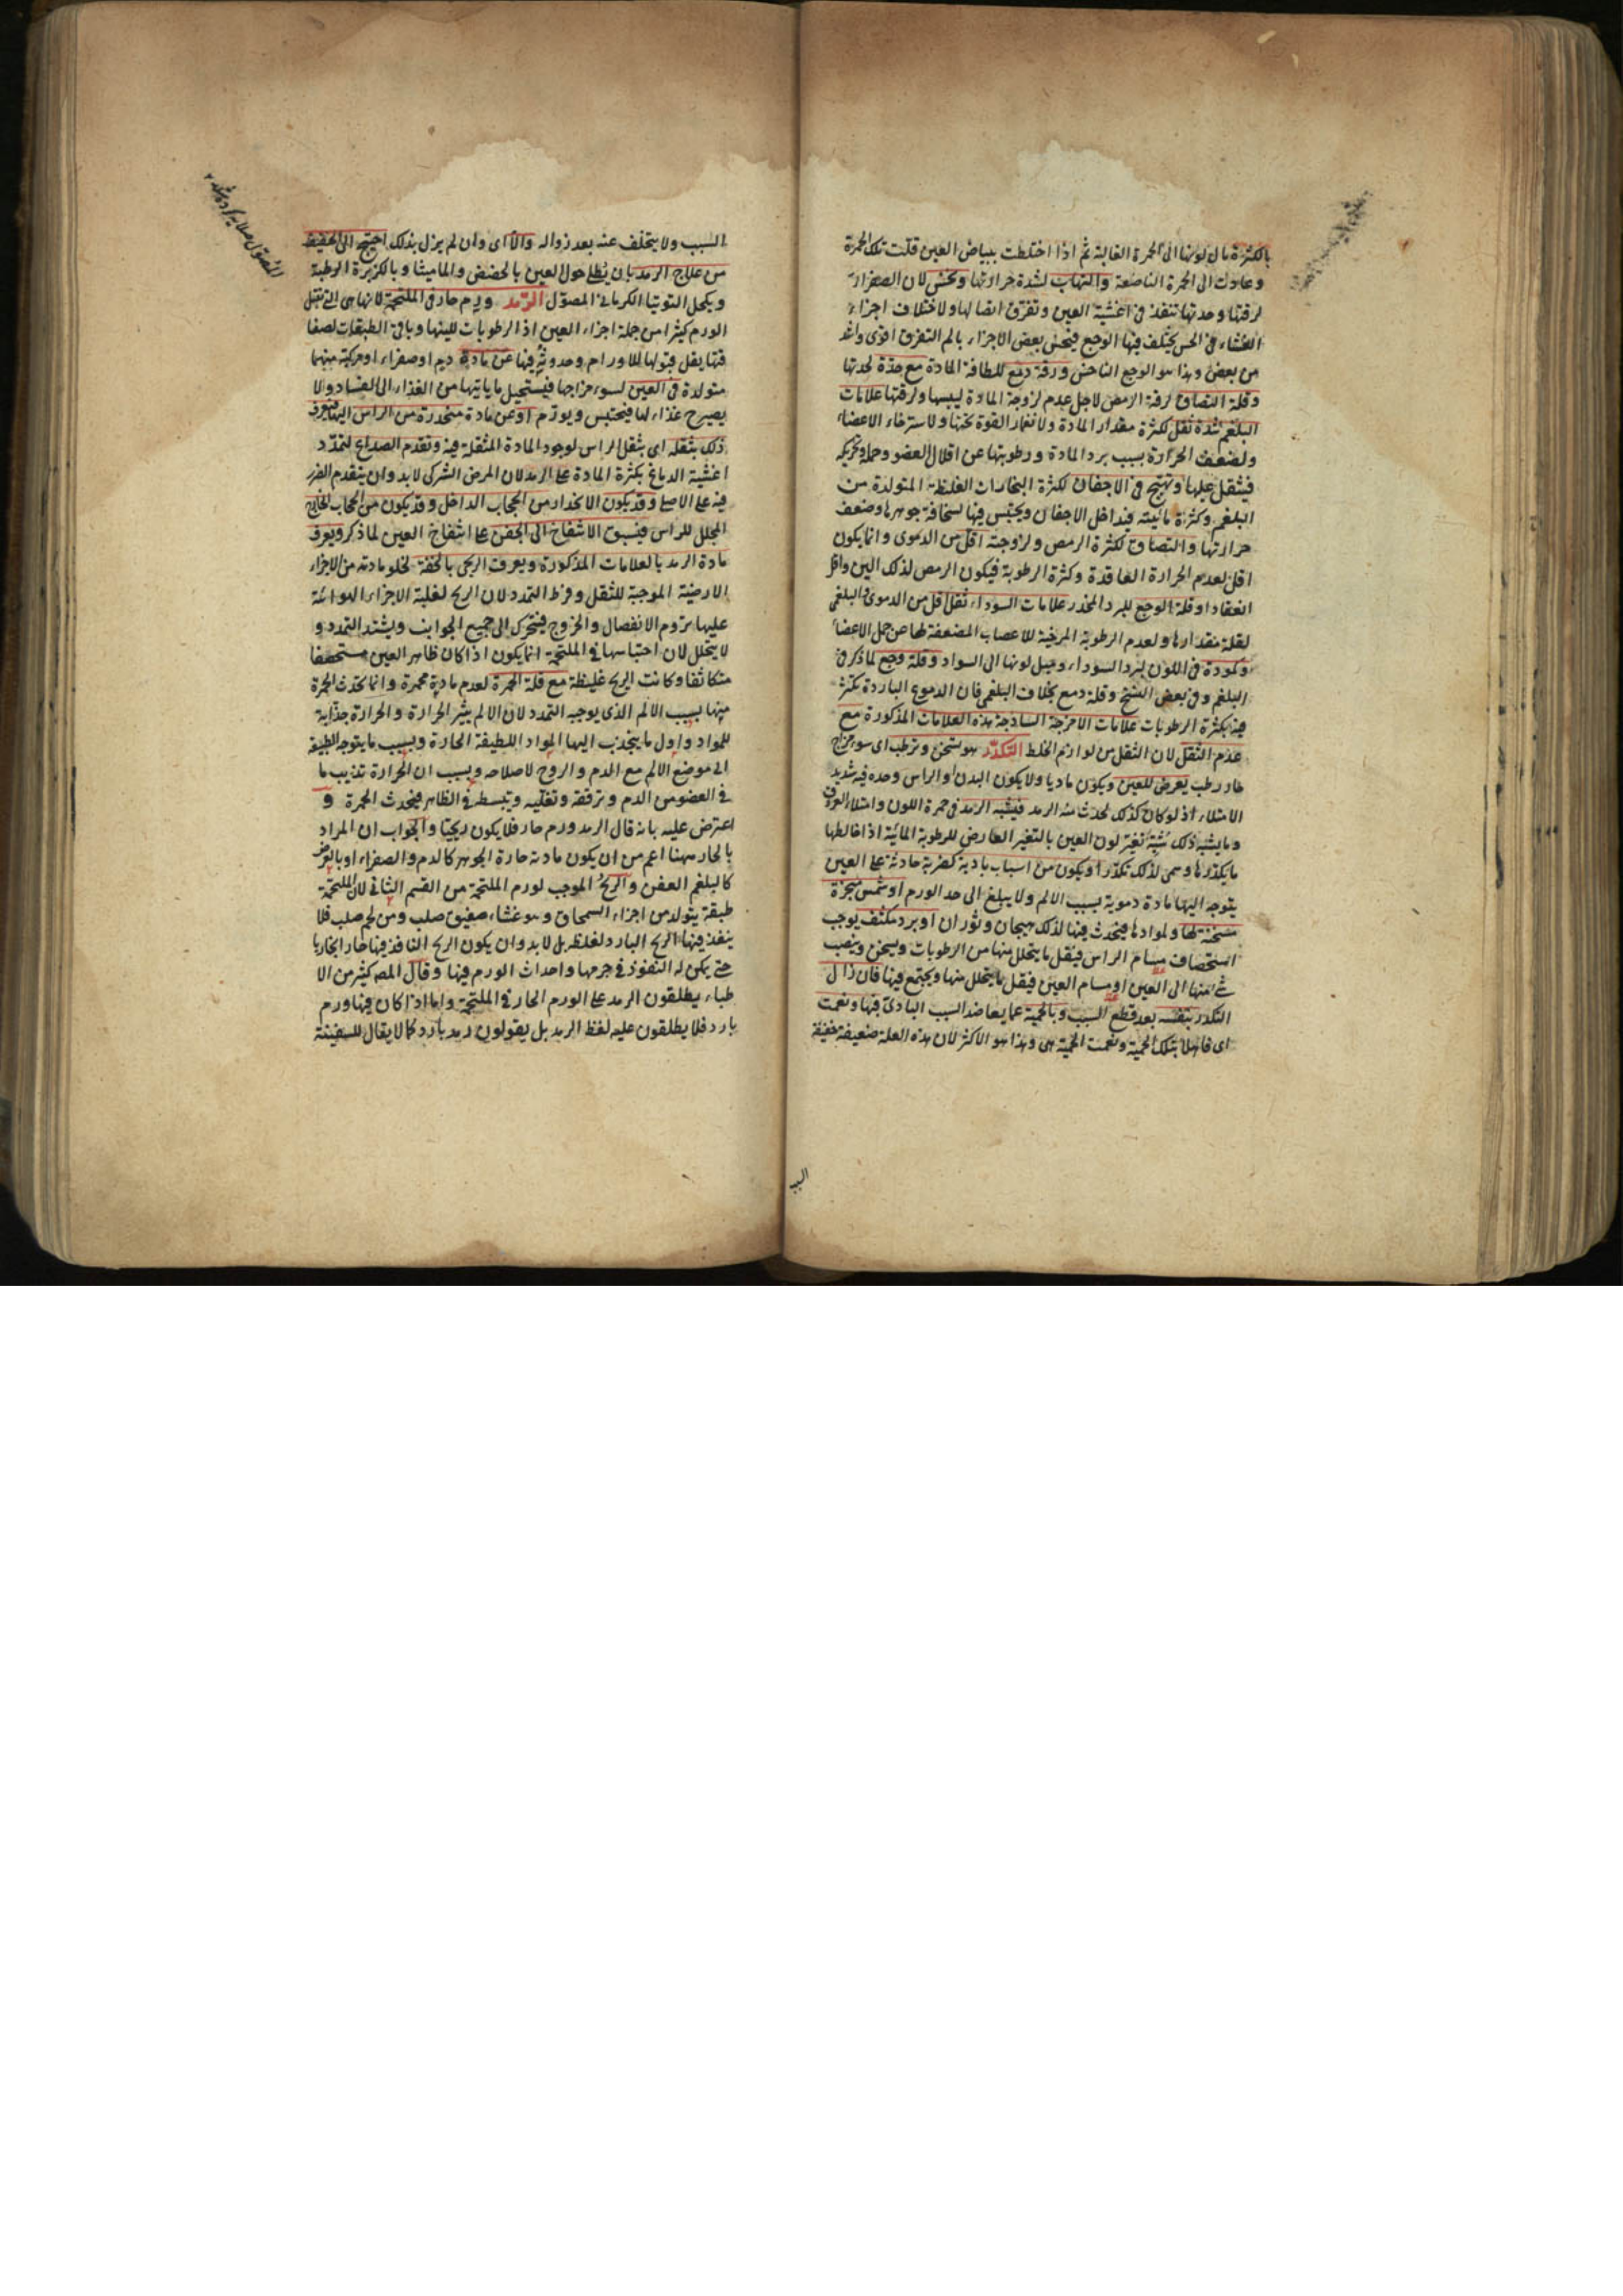 بالكثرة مال لونها الى الحمرة الغالبة ثم اذا اختلطت ببياض العين قلت تلك الحمرة
وعادت الى الحمرة الناصعة والتهاب لشدة حرارتها ونخس لان الصفراء
لرقتها وحدتها تنفذ فى اغشية العين وتفرق اتصالها ولاختلاف اجزاء
الغشاء فى الحس يختلف فيها الوجع فيحس بعض الاجزاء بالم التفرق اقوى واشد
من بعض وهذا هو الوجع الناخس ورقة دمع للطافة المادة مع حدة لحدتها
وقلة التصاق لرقة الرمص لاجل عدم لزوجة المادة ليبسها ولرقتها علامات
البلغم شدة ثقل لكثرة مقدار المادة ولانغمار القوة تحتها ولاسترخاء الاعضاء
ولضعف الحرارة بسبب برد المادة ورطوبتها عن اقلال العضو وحمله وتحريكه
فيثقل عليها وتهيج فى الاجفان لكثرة البخارات الغليظة المتولدة من
البلغم وكثرة مائيته فيداخل الاجفان ويحتبس فيها لسخافة جوهرها وضعف
حرارتها والتصاق لكثرة الرمص ولزوجته اقل من الدموى وانما يكون
اقل لعدم الحرارة العاقدة وكثرة الرطوبة فيكون الرمص لذلك الين واقل
انعقادا وقلة الوجع للبرد المخدر علامات السوداء ثقل اقل من الدموى والبلغمى
لقلة مقدارها ولعدم الرطوبة المرخية للاعصاب المضعفة لها عن حمل الاعضاء
وكمودة فى اللون لبرد السوداء وميل لونها الى السواد وقلة وجع لما ذكر فى
البلغم وفى بعض النسخ وقلة دمع بخلاف البلغمى فان الدموع الباردة تكثر
فيه بكثرة الرطوبات علامات الامزجة الساذجة هذه العلامات المذكورة مع
عدم الثقل لان الثقل من لوازم الخلط التكدر هو تسخن وترطب اى سوء مزاج
حار رطب يعرض للعين ويكون ماديا ولا يكون البدن او الراس وحده فيه شديد
الامتلاء اذ لو كان كذلك لحدث منه الرمد فيشبه الرمد فى حمرة اللون وامتلاء العروق
وما يشبه ذلك شبه تغير لون العين بالتغير العارض للرطوبة المائية اذا خالطها
ما يكدرها وسمى لذلك تكدرا ويكون من اسباب بادية كضربة حادثة على العين
يتوجه اليها مادة دموية بسبب الالم ولا يبلغ الى حد الورم او شمس مبخرة
مسخنة لها ولموادها فيحدث فيها لذلك هيجان وثوران او برد مكثف يوجب
استحصاف مسام الراس فيقل ما يتحلل منها من الرطوبات ويسخن وينصب
شئ منها الى العين او مسام العين فيقل ما يتحلل منها ويجتمع فيها فان زال
التكدر بنفسه بعد قطع السبب وبالحمية عما يعاضد السبب البادى فبها ونعمت
اى فاهلا بتلك الحمية ونعمت الحمية هى وهذا هو الاكثر لان هذه العلة ضعيفة خفيفة
السبب
السبب ولا يتخلف عنه بعد زواله والا اى وان لم يزل بذلك احتيج الى الخفيف
من علاج الرمد بان يطلى حول العين بالحضض والماميثا وبالكزبرة الرطبة
ويكحل التوتيا الكرمانى المصول الرمد ورم حار فى الملتحمة لانها هى التى تقبل
الورم كثيرا من جملة اجزاء العين اذ الرطوبات للينها وباقى الطبقات لصفا
قتها يقل قبولها للاورام وحدوثه فيها عن مادة دم او صفراء او مركبة منهما
متولدة فى العين لسوء مزاجها فيستحيل ما ياتيها من الغذاء الى الفساد ولا
يصير غذاء لها فيحتبس ويورم او عن مادة منحدرة من الراس اليها فيعرف
ذلك بثقله اى بثقل الراس لوجود المادة المثقلة فيه وتقدم الصداع لتمدد
اغشية الدماغ بكثرة المادة على الرمد لان المرض الشركى لا بد وان يتقدم الضرر
فيه على الاصل وقد يكون الانحدار من الحجاب الداخل وقد يكون من الحجاب الخارج
المجلل للراس فيسبق الانتفاخ الى الجفن على انتفاخ العين لما ذكر ويعرف
مادة الرمد بالعلامات المذكورة ويعرف الريحى بالخفة لخلو مادته من الاجزاء
الارضية الموجبة للثقل وفرط التمدد لان الريح لغلبة الاجزاء الهوائية
عليها تروم الانفصال والخروج فيتحرك الى جميع الجوانب ويشتد التمدد و
لا يتحلل لان احتباسها فى الملتحمة انما يكون اذا كان ظاهر العين مستحصفا
متكاثفا وكانت الريح غليظة مع قلة الحمرة لعدم مادة محمرة وانما تحدث الحمرة
فيها بسبب الالم الذى يوجبه التمدد لان الالم يثير الحرارة والحرارة جذابة
للمواد واول ما ينجذب اليها المواد اللطيفة الحارة وبسبب ما يتوجه الطبيعة
الى موضع الالم مع الدم والروح لاصلاحه وبسبب ان الحرارة تذيب ما
فى العضو من الدم وترققه وتغليه وتبسطه فى الظاهر فيحدث الحمرة و
اعترض عليه بانه قال الرمد ورم حار فلا يكون ريحيا والجواب ان المراد
بالحار ههنا اعم من ان يكون مادته حارة الجوهر كالدم والصفراء او بالعرض
كالبلغم العفن والريح الموجب لورم الملتحمة من القسم الثانى لان الملتحمة
طبقة يتولد من اجزاء السمحاق وهو غشاء صفيق صلب ومن لحم صلب فلا
ينفذ فيها الريح البارد لغلظه بل لا بد وان يكون الريح النافذ فيها حارا بخاريا
حتى يمكن له النفوذ فى جرمها واحداث الورم فيها وقال المص كثير من الا
طباء يطلقون الرمد على الورم الحار فى الملتحمة واما اذا كان فيها ورم
بارد فلا يطلقون عليه لفظ الرمد بل يقولون رمد بارد كما لا يقال للسفينة